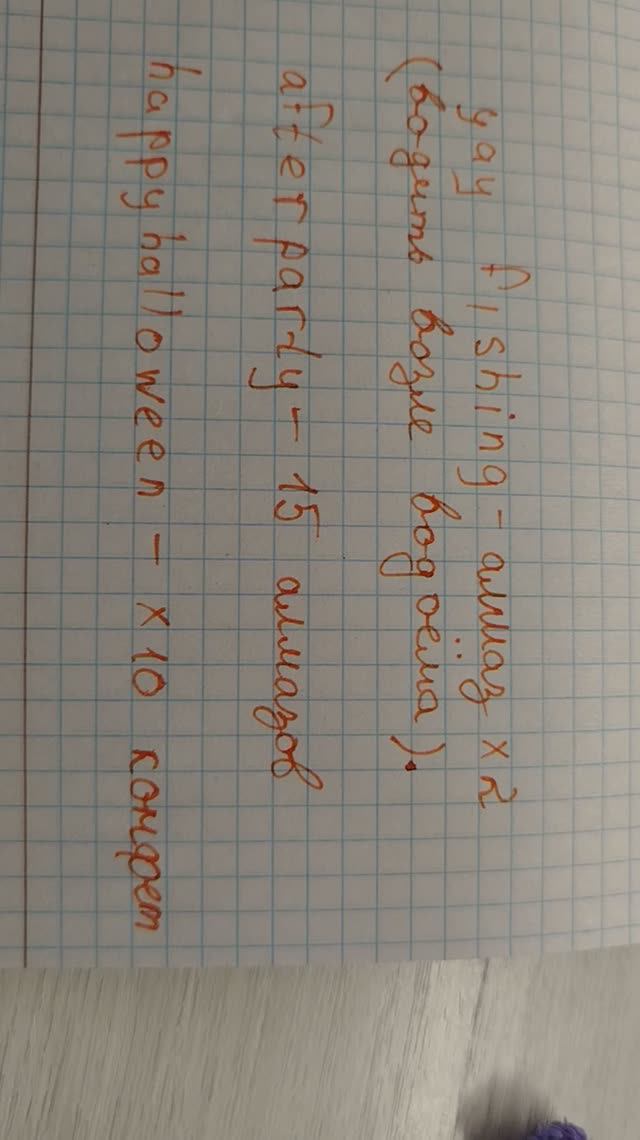 yay fishing - алмаз x2
(водить возле водоёма).
afterparty - 15 алмазов
happyhalloween - x10 конфет